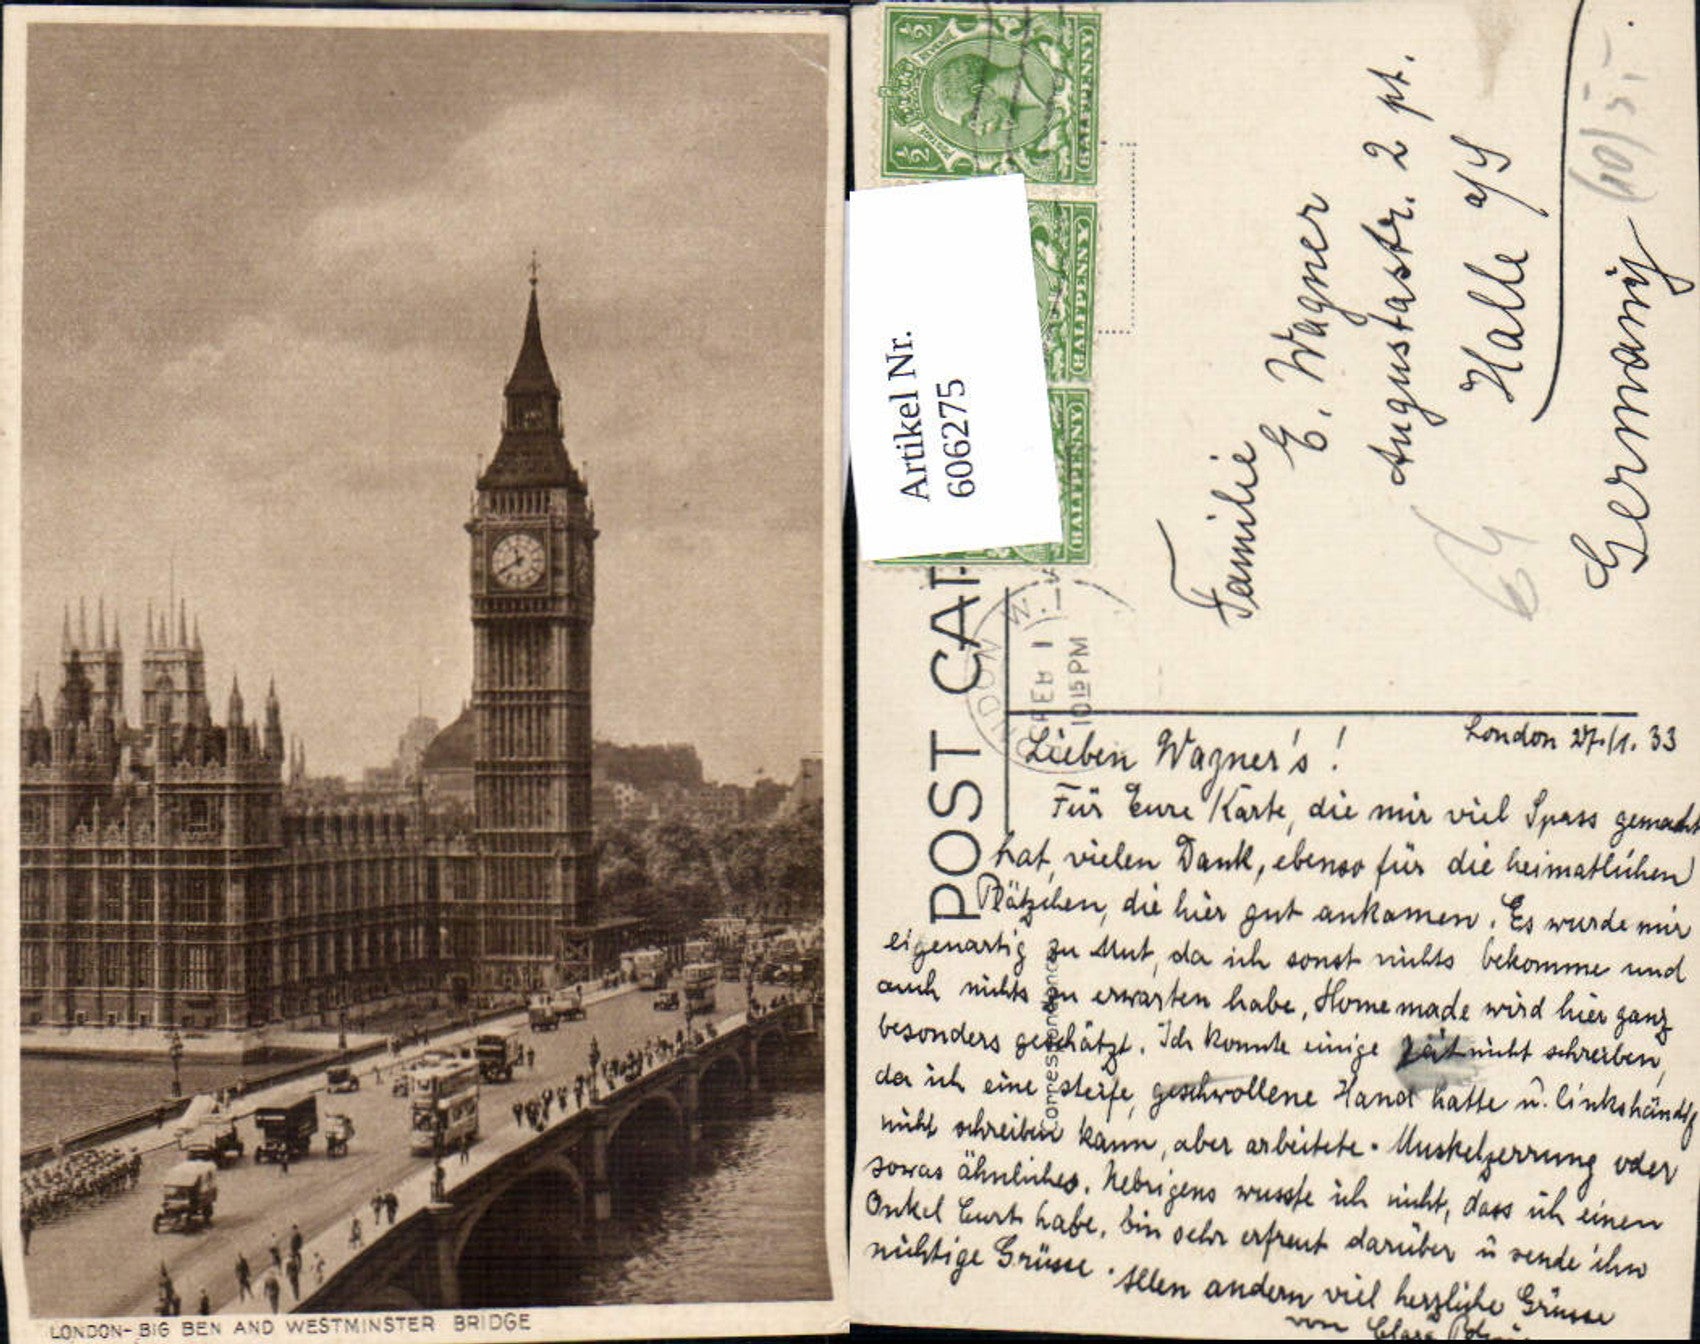 LONDON- BIG BEN AND WESTMINSTER BRIDGE
HALFPENNY
HALFPENNY
HALFPENNY
Artikel Nr.
606275
POST CAR
10 15 PM
Familie
E. Wagner
Augustastr. 2 pt.
Halle a/S
Germany
London 27./1. 33
Lieben Wagner's!
Für Eure Karte, die mir viel Spass gemacht
hat, vielen Dank, ebenso für die heimatlichen
Plätzchen, die hier gut ankamen. Es wurde mir
eigenartig zu Mut, da ich sonst nichts bekomme und
auch nichts zu erwarten habe, Home made wird hier ganz
besonders geschätzt. Ich konnte einige Zeit nicht schreiben,
da ich eine steife, geschwollene Hand hatte u. linkshändig
nicht schreiben kann, aber arbeitete. Muskelzerrung oder
sowas ähnliches. Uebrigens wusste ich nicht, dass ich einen
Onkel Curt habe, bin sehr erfreut darüber u sende ihm
nichtige Grüsse. Allen andern viel herzliche Grüsse
von Clara